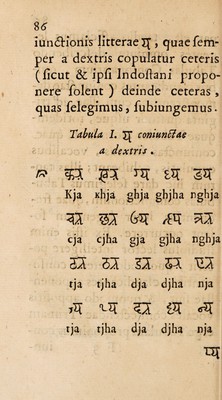 86
iunctionis litterae य, quae sem-
per a dextris copulatur ceteris
(sicut & ipsi Indostani propo-
nere solent) deinde ceteras,
quas selegimus, subiungemus.
Tabula I. य coniunctae
a dextris.
क्य ख्य ग्य घ्य ङ्य
Kja khja ghja ghjha nghja
च्य छ्य ज्य झ्य ञ्य
cja cjha gja gjha nghja
ट्य ठ्य ड्य ढ्य ण्य
tja tjha dja djha nja
त्य थ्य द्य ध्य न्य
tja tjha dja djha nja
प्य